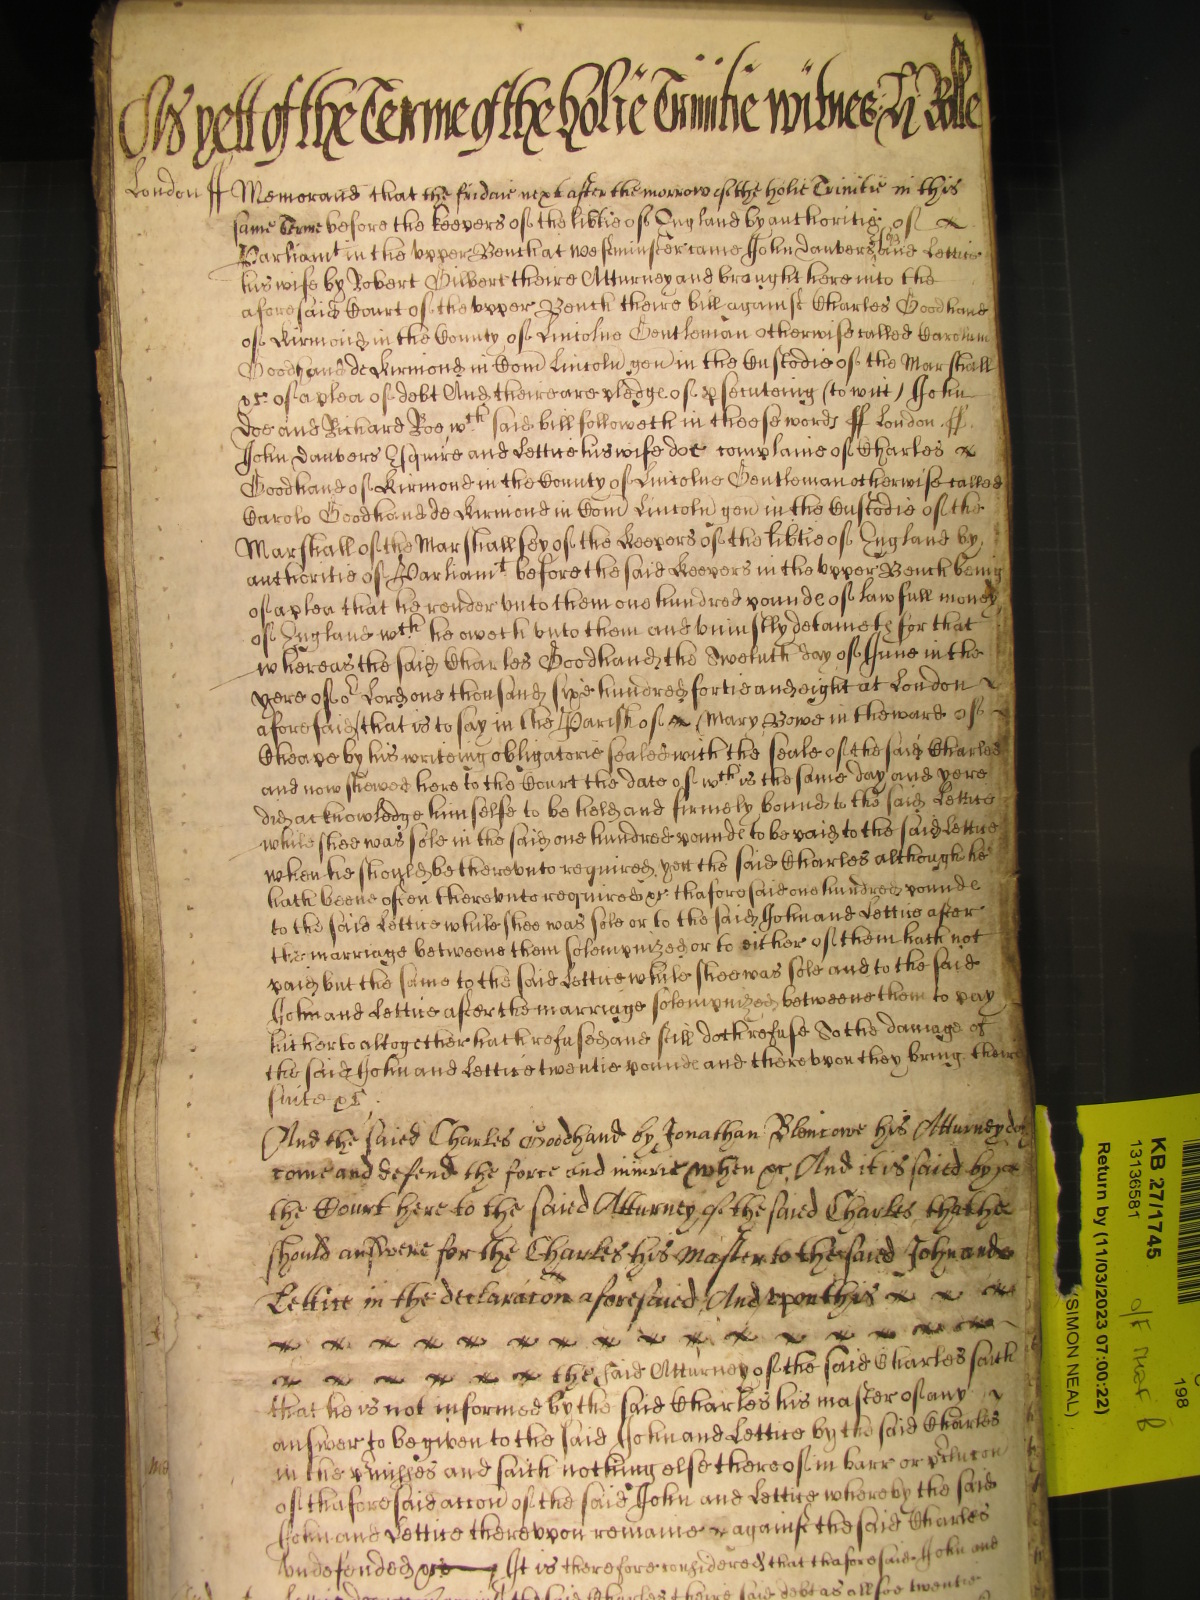 As yett of the Terme of the holie Trinitie witnes H Rolle
London ff Memorand that the fridaie next after the morrow of the holie Trinitie in this
same Terme before the keepers of the libtie of England by authoritie of
Parliamt in the upper Bench at Westminster came John Danvers Esq and Lettice
his wife by Robert Gilbert theire Atturney and brought here into the
aforesaid Court of the upper Bench theire bill against Charles Goodhand
of Kirmond in the County of Lincolne Gentleman otherwise called Carolum
Goodhand de Kirmond in Com Lincoln gen in the Custodie of the Marshall
&c of a plea of debt And theire are pledge of psecuteing (to witt) John
Doe and Richard Roe wth said bill followeth in theese words ff London ff
John Danvers Esquire and Lettice his wife doe complaine of Charles
Goodhand of Kirmond in the County of Lincolne Gentleman otherwise called
Carolo Goodhand de Kirmond in Com Lincoln gen in the Custodie of the
Marshall of the Marshallsey of the keepers of the libtie of England by
authoritie of Parliamt before the said keepers in the upper Bench being
of a plea that he render unto them one hundred pounde of lawfull money
of England wth he oweth unto them and uniustly detaineth for that
whereas the said Charles Goodhand the Twelueth day of June in the
yere of or Lord one thousand sixe hundred fortie and eight at London
aforesaid that is to say in the Parish of Mary Bowe in the ward of
Cheape by his writeing obligatorie sealed with the seale of the said Charles
and now shewed here to the Court the date of wth is the same day and yere
did acknowledge himselfe to be held and firmely bound to the said Lettice
while shee was sole in the said one hundred pounde to be paid to the said Lettice
when he should be thereunto required yett the said Charles although he
hath beene often thereunto required &c thaforesaid one hundred pounde
to the said Lettice while shee was sole or to the said John and Lettice after
the marriage betweene them solempnized or to either of them hath not
paid but the same to the said Lettice while shee was sole and to the said
John and Lettice after the marriage solempnized betweene them to pay
hitherto altogether hath refused and still doth refuse So the damage of
the said John and Lettice twentie pounde and thereupon they bring theire
suite &c
And the saied Charles Goodhand by Jonathan Blencowe his Atturney doth
come and defend the force and iniurie when &c And it is saied by
the Court here to the saied Atturney of the saied Charles that he
should answere for the Charles his Master to the saied John and
Lettice in the declaracon aforesaied And upon this
the said Atturney of the said Charles saith
that he is not informed by the said Charles his master of any
answer to be given to the said John and Lettice by the said Charles
in the pmisses and saith nothing else thereof in barr or pclucon
of thaforesaid accon of the said John and Lettice whereby the said
John and Lettice thereupon remaine against the said Charles
undefended &c It is therefore considered that thaforesaid John and
the said Charles theire said debt as allsoe twentie
KB 27/1745
13136581
Return by (11/03/2023 07:00:22)
(SIMON NEAL)
198